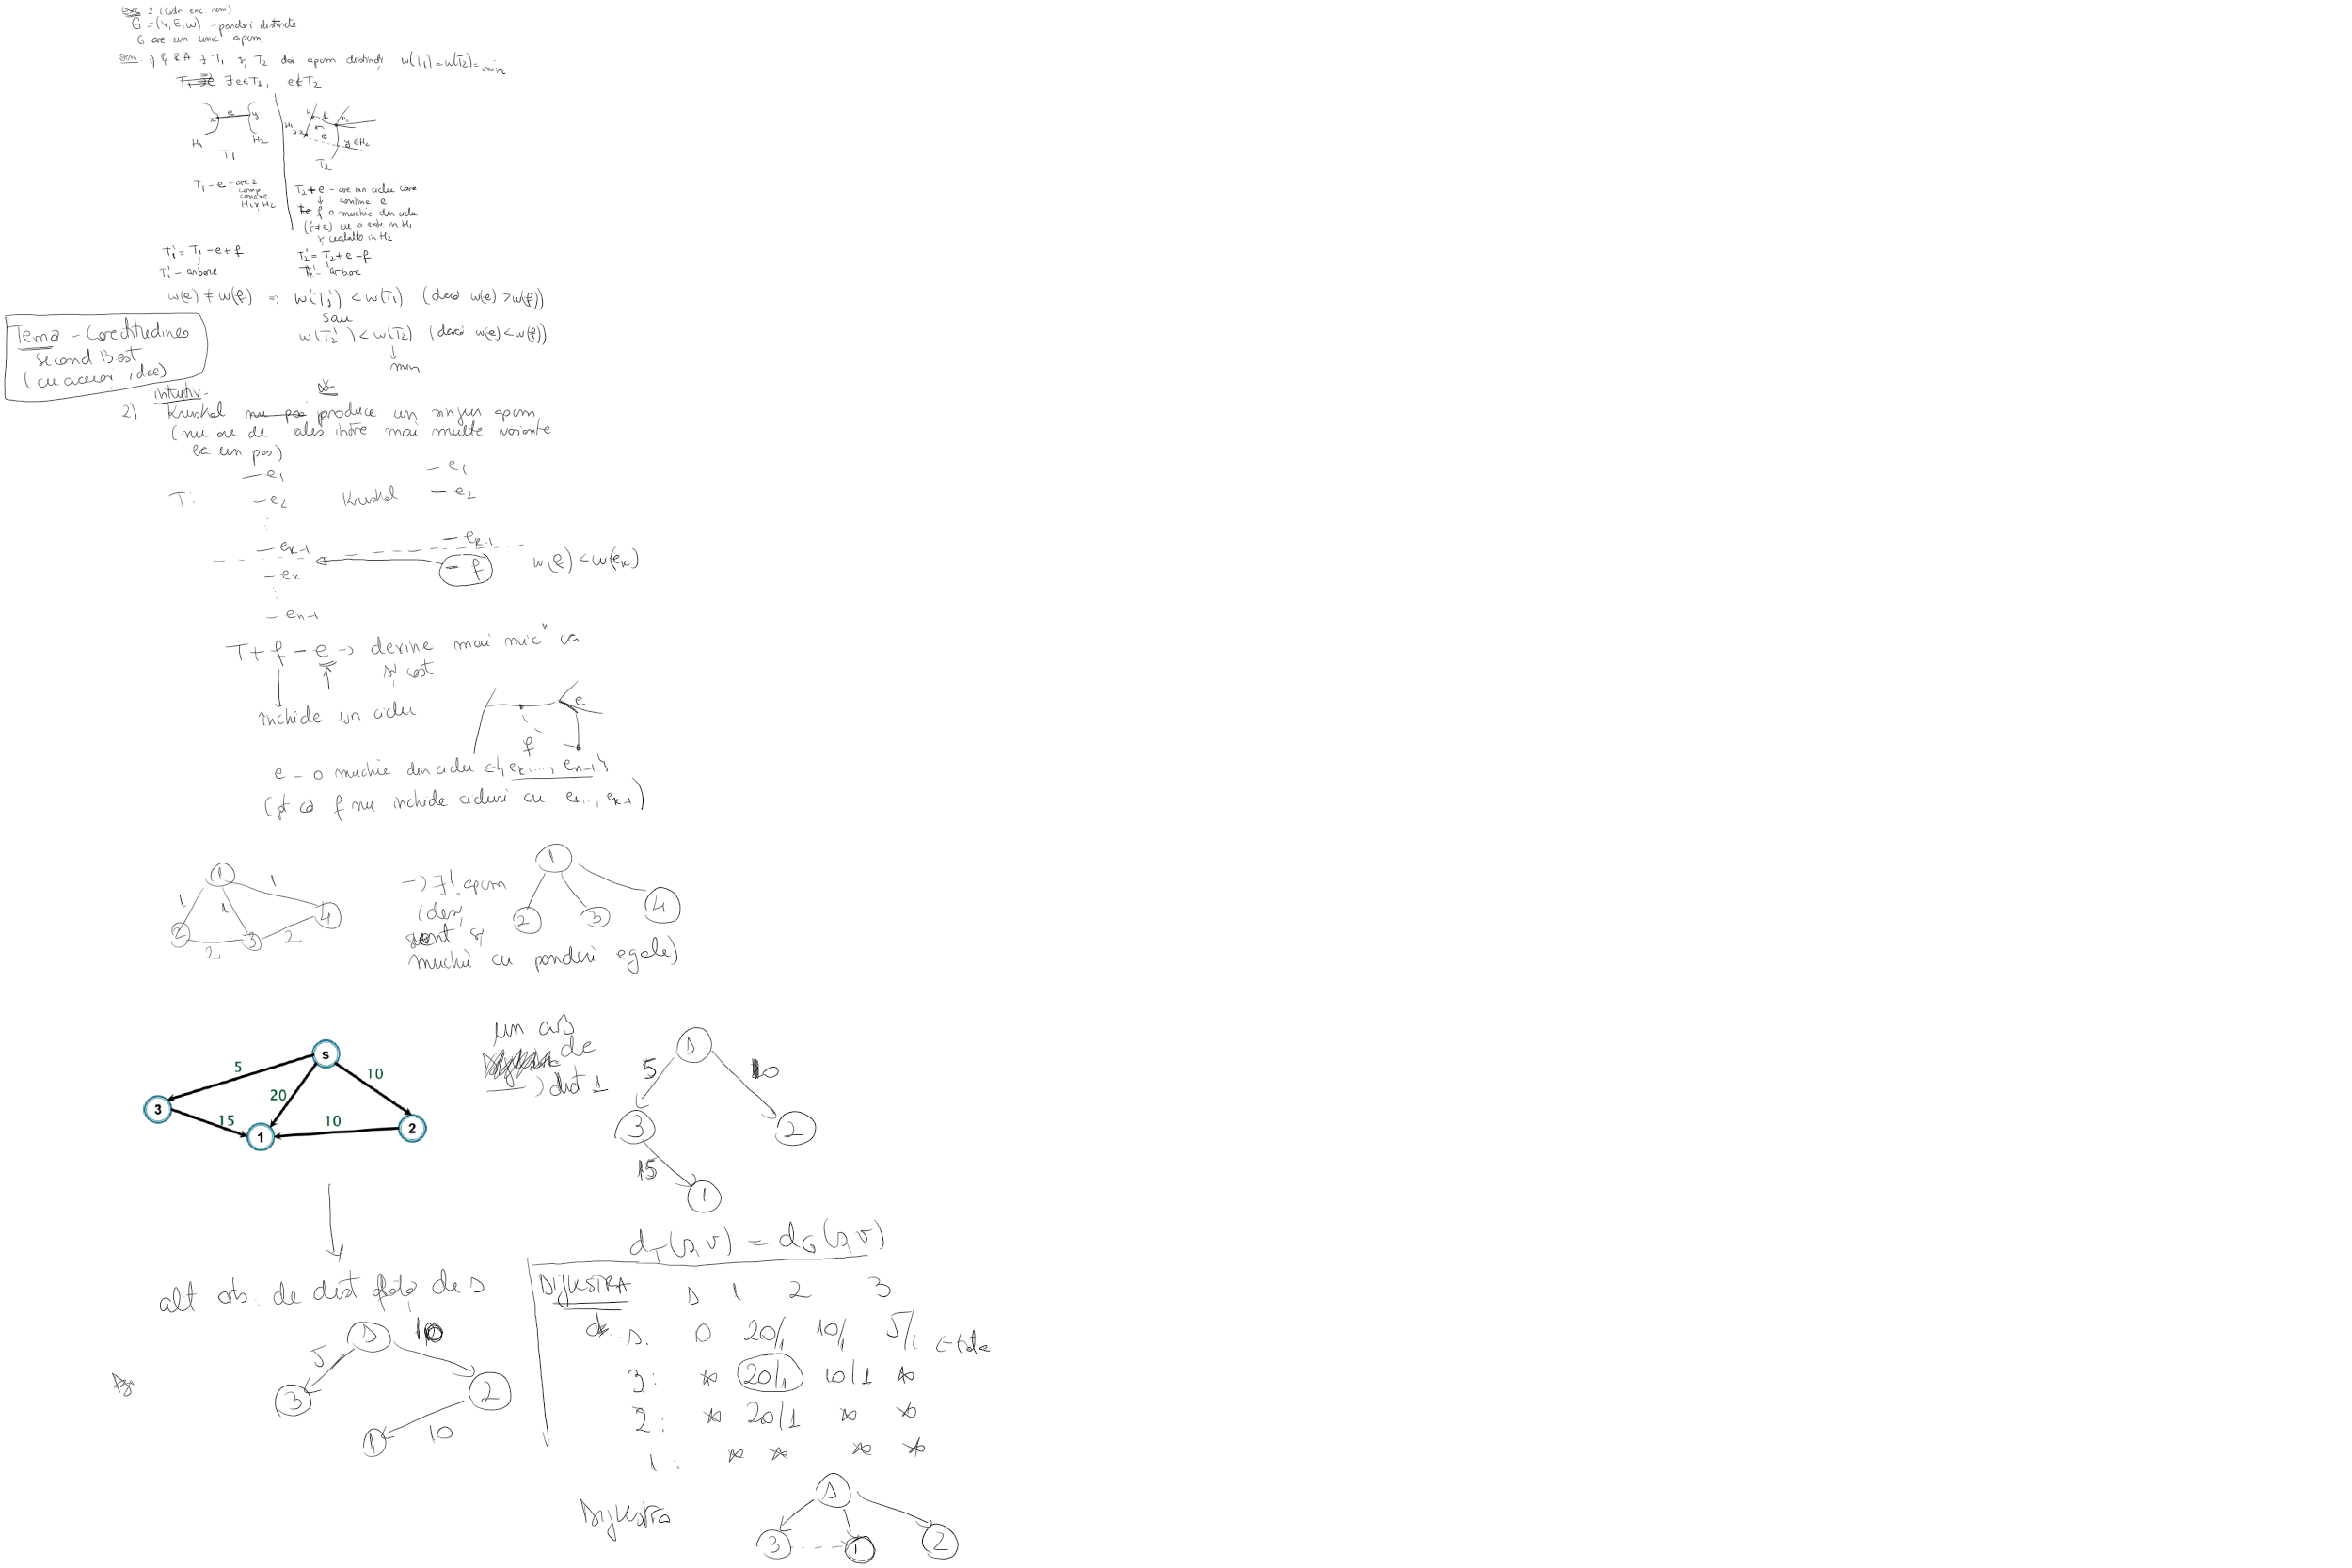 exc 1 (lista exc. sem)
G = (V, E, w) - ponderi distincte
G are un unic apcm
Dem. 1) P R A ∃ T1 și T2 doi apcm distincți w(T1) = w(T2) = min
∃ e ∈ T1, e ∉ T2
x e y
H1 H2
T1
e
y ∈ H2
T2
T1 - e - are 2
comp
conexe
H1 și H2
T2 + e - are un ciclu care
↓ contine e
fie f o muchie din ciclu
(f ≠ e) cu o extr. in H1
și cealalta in H2
T1' = T1 - e + f
T1' - arbore
T2' = T2 + e - f
T2' - arbore
w(e) ≠ w(f) => w(T1') < w(T1) (daca w(e) > w(f))
sau
w(T2') < w(T2) (daca w(e) < w(f))
↓
min
Tema - Corectitudinea
Second Best
(cu aceeași idee)
intuitiv -
2) Kruskal produce un singur apcm
(nu are de ales intre mai multe variante
la un pas)
T: - e1
- e2
⋮
- ek-1
- ek
⋮
- en-1
Kruskal - e1
- e2
- ek-1
- f w(f) < w(ek)
T + f - e → devine mai mic ca
și cost
inchide un ciclu
e
f
e - o muchie din ciclu ∈ {ek, ..., en-1}
(pt ca f nu inchide cicluri cu e1, .., ek-1)
1
1 1 1
2 3 4
2 2
→ ∃! apcm
(deși
sunt și
muchii cu ponderi egale)
1
2 3 4
s
5 10
20
3
15 10
1 2
un arb
de
dist
s
5 10
3 2
15
1
dT(s,v) = dG(s,v)
alt arb. de dist față de s
s
5 10
3 2
1 10
DIJKSTRA s 1 2 3
s. 0 20/1 10/1 5/1 ← tata
3: * 20/1 10/1 *
2: * 20/1 * *
1: * * * *
Dijkstra
s
3 1 2